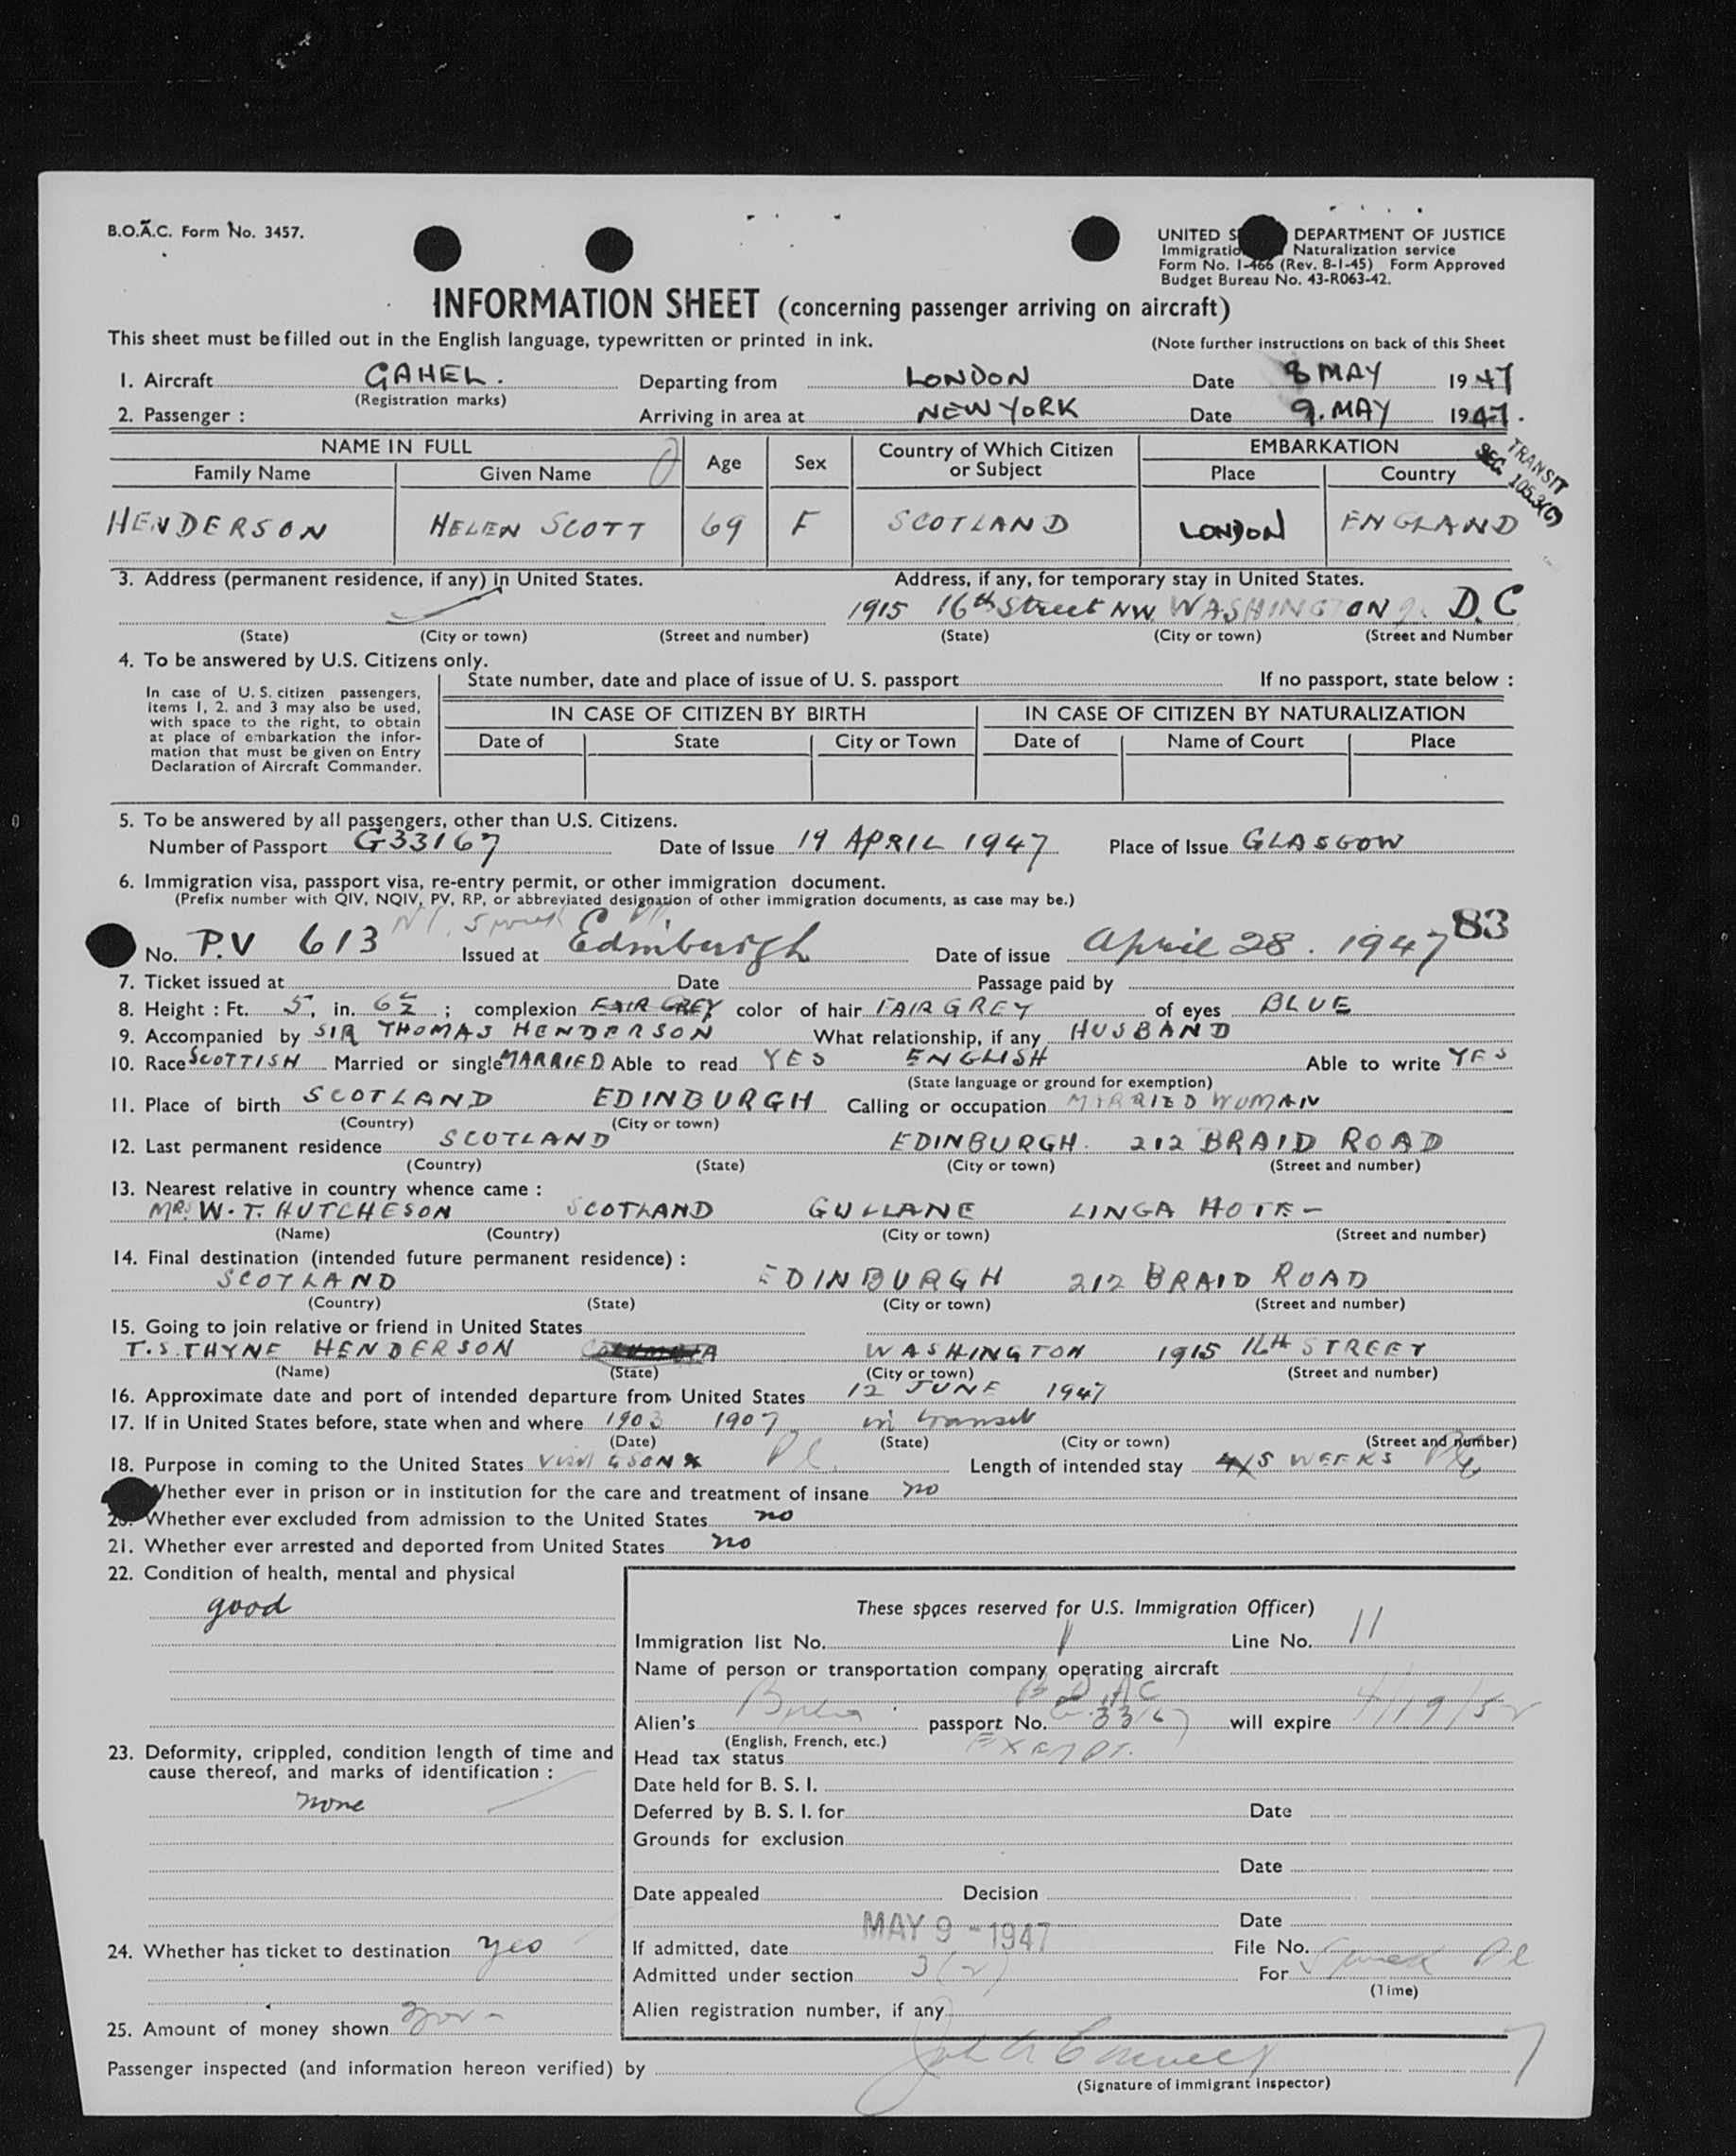 B.O.A.C. Form No. 3457.
UNITED S DEPARTMENT OF JUSTICE
Immigratio Naturalization service
Form No. I-466 (Rev. 8-1-45) Form Approved
Budget Bureau No. 43-R063-42.
INFORMATION SHEET (concerning passenger arriving on aircraft)
This sheet must be filled out in the English language, typewritten or printed in ink. (Note further instructions on back of this Sheet
1. Aircraft GAHEL. Departing from LONDON Date 8 MAY 1947
(Registration marks)
2. Passenger : Arriving in area at NEW YORK Date 9. MAY 1947.
NAME IN FULL Age Sex Country of Which Citizen or Subject EMBARKATION
Family Name Given Name Place Country
TRANSIT
SEC. 105.3(C)
HENDERSON HELEN SCOTT 69 F SCOTLAND LONDON ENGLAND
3. Address (permanent residence, if any) in United States. Address, if any, for temporary stay in United States.
1915 16th Street NW. WASHINGTON D.C
(State) (City or town) (Street and number) (State) (City or town) (Street and Number
4. To be answered by U.S. Citizens only.
State number, date and place of issue of U. S. passport If no passport, state below :
In case of U. S. citizen passengers,
items 1, 2. and 3 may also be used,
with space to the right, to obtain
at place of embarkation the infor-
mation that must be given on Entry
Declaration of Aircraft Commander.
IN CASE OF CITIZEN BY BIRTH IN CASE OF CITIZEN BY NATURALIZATION
Date of State City or Town Date of Name of Court Place
5. To be answered by all passengers, other than U.S. Citizens.
Number of Passport G33167 Date of Issue 19 APRIL 1947 Place of Issue GLASGOW
6. Immigration visa, passport visa, re-entry permit, or other immigration document.
(Prefix number with QIV, NQIV, PV, RP, or abbreviated designation of other immigration documents, as case may be.)
83
No. P.V 613 Issued at Edinburgh Date of issue April 28. 1947
7. Ticket issued at Date Passage paid by
8. Height : Ft. 5, in. 6½ ; complexion FAIR GREY color of hair FAIR GREY of eyes BLUE
9. Accompanied by SIR THOMAS HENDERSON What relationship, if any HUSBAND
10. Race SCOTTISH Married or single MARRIED Able to read YES ENGLISH Able to write YES
(State language or ground for exemption)
11. Place of birth SCOTLAND EDINBURGH Calling or occupation MARRIED WOMAN
(Country) (City or town)
12. Last permanent residence SCOTLAND EDINBURGH. 212 BRAID ROAD
(Country) (State) (City or town) (Street and number)
13. Nearest relative in country whence came :
MRS W. T. HUTCHESON SCOTLAND GULLANE LINGA
(Name) (Country) (City or town) (Street and number)
14. Final destination (intended future permanent residence) :
SCOTLAND EDINBURGH 212 BRAID ROAD
(Country) (State) (City or town) (Street and number)
15. Going to join relative or friend in United States
T. S. THYNE HENDERSON WASHINGTON 1915 16th STREET
(Name) (State) (City or town) (Street and number)
16. Approximate date and port of intended departure from United States 12 JUNE 1947
17. If in United States before, state when and where 1903 1907 in transit
(Date) (State) (City or town) (Street and number)
18. Purpose in coming to the United States Visit SON Pl. Length of intended stay 4/5 WEEKS
Whether ever in prison or in institution for the care and treatment of insane no
20. Whether ever excluded from admission to the United States no
21. Whether ever arrested and deported from United States no
22. Condition of health, mental and physical
good
These spaces reserved for U.S. Immigration Officer)
Immigration list No. 1 Line No. 11
Name of person or transportation company operating aircraft
B O A C
Alien's passport No. G. 33167 will expire 4/19/52
(English, French, etc.)
23. Deformity, crippled, condition length of time and
cause thereof, and marks of identification :
none
Head tax status EXEMPT.
Date held for B. S. I.
Deferred by B. S. I. for Date
Grounds for exclusion
Date
Date appealed Decision
Date
MAY 9 - 1947
24. Whether has ticket to destination yes
If admitted, date File No.
Admitted under section 3(2) For
(Time)
Alien registration number, if any
25. Amount of money shown
Passenger inspected (and information hereon verified) by
(Signature of immigrant inspector)